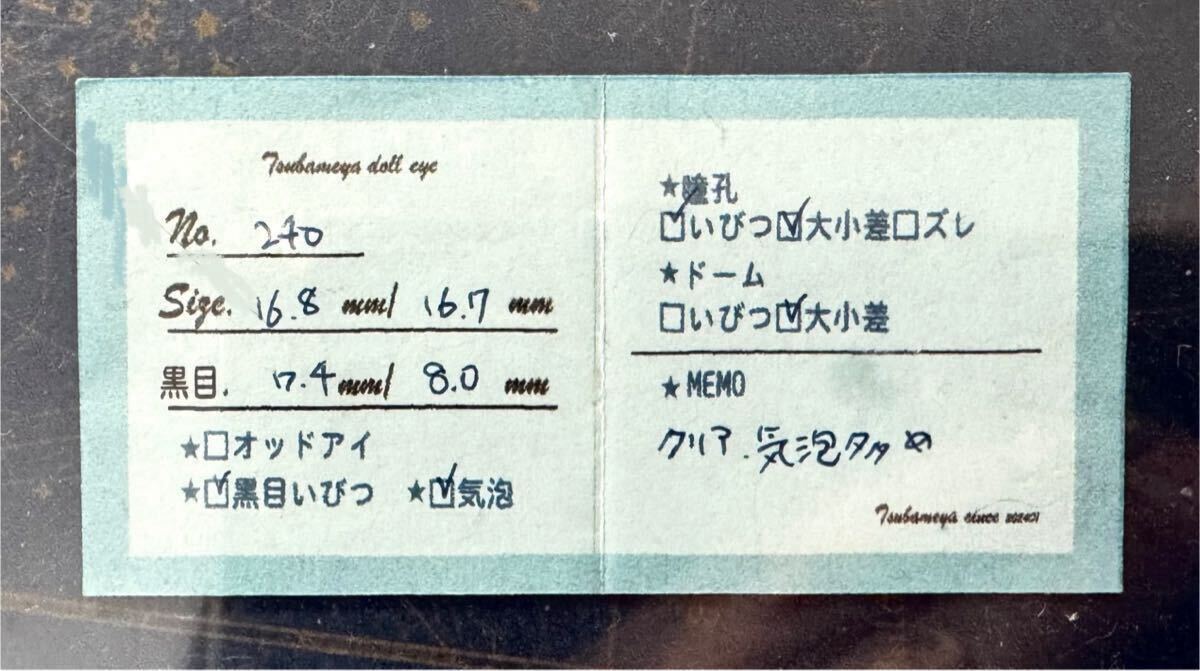 Tsubameya doll eye
No. 240
Size. 16.8 mm/ 16.7 mm
黒目. 7.4 mm/ 8.0 mm
★□オッドアイ
★☑黒目いびつ ★☑気泡
★瞳孔
☑いびつ☑大小差□ズレ
★ドーム
□いびつ☑大小差
★MEMO
クリア.気泡多め
Tsubameya since